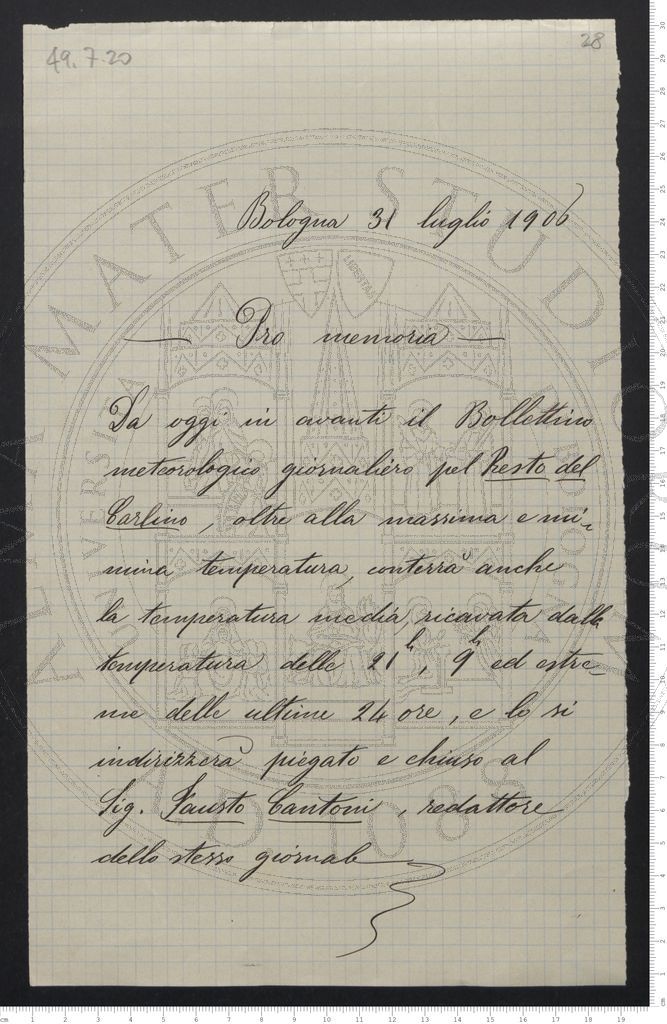 49.7.20
28
Bologna 31 luglio 1906
— Pro memoria —
Da oggi in avanti il Bollettino
meteorologico giornaliero pel Resto del
Carlino, oltre alla massima e mi-
nima temperatura, conterrà anche
la temperatura media, ricavata dalla
temperatura delle 21h, 9h ed estre-
me delle ultime 24 ore, e lo si
indirizzerà piegato e chiuso al
Sig. Fausto Cantoni, redattore
dello stesso giornale